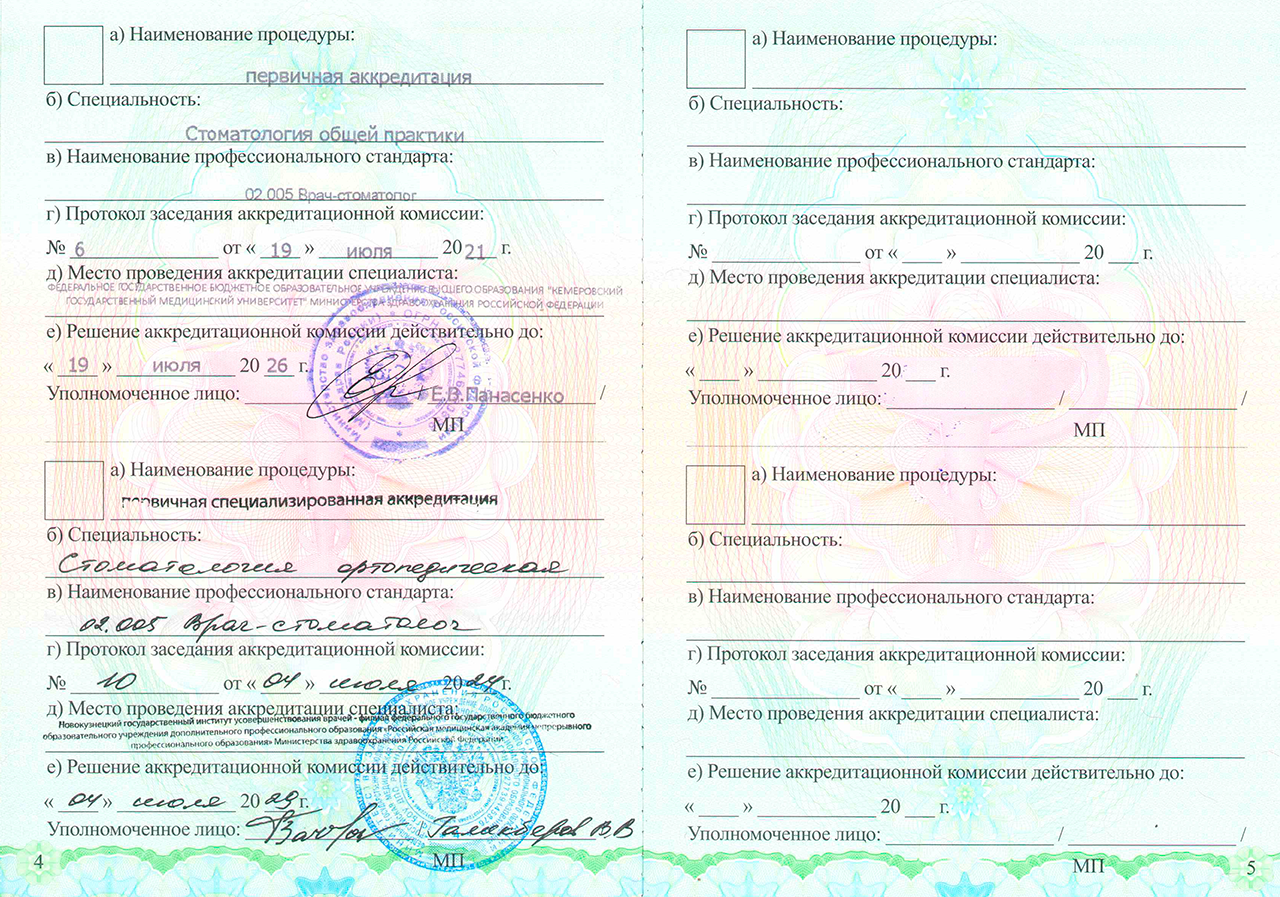 а) Наименование процедуры:
первичная аккредитация
б) Специальность:
Стоматология общей практики
в) Наименование профессионального стандарта:
02.005 Врач-стоматолог
г) Протокол заседания аккредитационной комиссии:
№ 6 от « 19 » июля 2021 г.
д) Место проведения аккредитации специалиста:
ФЕДЕРАЛЬНОЕ ГОСУДАРСТВЕННОЕ БЮДЖЕТНОЕ ОБРАЗОВАТЕЛЬНОЕ УЧРЕЖДЕНИЕ ВЫСШЕГО ОБРАЗОВАНИЯ "КЕМЕРОВСКИЙ
ГОСУДАРСТВЕННЫЙ МЕДИЦИНСКИЙ УНИВЕРСИТЕТ" МИНИСТЕРСТВА ЗДРАВООХРАНЕНИЯ РОССИЙСКОЙ ФЕДЕРАЦИИ
е) Решение аккредитационной комиссии действительно до:
« 19 » июля 2026 г.
Уполномоченное лицо: / Е.В.Панасенко /
МП
а) Наименование процедуры:
первичная специализированная аккредитация
б) Специальность:
Стоматология ортопедическая
в) Наименование профессионального стандарта:
02.005 Врач-стоматолог
г) Протокол заседания аккредитационной комиссии:
№ 10 от « 04 » июля 2024 г.
д) Место проведения аккредитации специалиста:
Новокузнецкий государственный институт усовершенствования врачей - филиал федерального государственного бюджетного
образовательного учреждения дополнительного профессионального образования «Российская медицинская академия непрерывного
профессионального образования» Министерства здравоохранения Российской Федерации
е) Решение аккредитационной комиссии действительно до:
« 04 » июля 2029 г.
Уполномоченное лицо: / В.В
МП
4
а) Наименование процедуры:
б) Специальность:
в) Наименование профессионального стандарта:
г) Протокол заседания аккредитационной комиссии:
№ от « » 20 г.
д) Место проведения аккредитации специалиста:
е) Решение аккредитационной комиссии действительно до:
« » 20 г.
Уполномоченное лицо: / /
МП
а) Наименование процедуры:
б) Специальность:
в) Наименование профессионального стандарта:
г) Протокол заседания аккредитационной комиссии:
№ от « » 20 г.
д) Место проведения аккредитации специалиста:
е) Решение аккредитационной комиссии действительно до:
« » 20 г.
Уполномоченное лицо: / /
МП
5